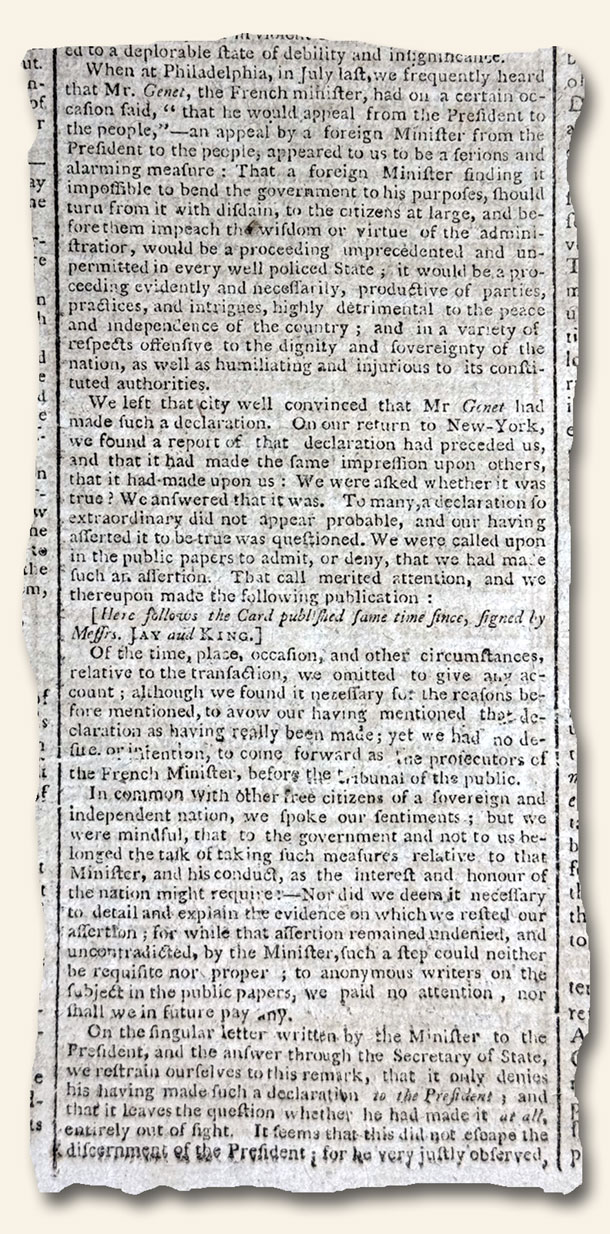 ed to a deplorable ſtate of debility and inſignificance.
When at Philadelphia, in July laſt, we frequently heard
that Mr. Genet, the French miniſter, had on a certain oc-
caſion ſaid, “ that he would appeal from the Preſident to
the people,”—an appeal by a foreign Miniſter from the
Preſident to the people, appeared to us to be a ſerions and
alarming meaſure : That a foreign Miniſter finding it
impoſſible to bend the government to his purpoſes, ſhould
turn from it with diſdain, to the citizens at large, and be-
fore them impeach the wiſdom or virtue of the admini-
ſtratior, would be a proceeding imprecedented and un-
permitted in every well policed State ; it would be a pro-
ceeding evidently and neceſſarily, productive of parties,
practices, and intrigues, highly detrimental to the peace
and independence of the country ; and in a variety of
reſpects offenſive to the dignity and ſovereignty of the
nation, as well as humiliating and injurious to its conſti-
tuted authorities.
We left that city well convinced that Mr Genet had
made ſuch a declaration. On our return to New-York,
we found a report of that declaration had preceded us,
and that it had made the ſame impreſſion upon others,
that it had made upon us : We were aſked whether it was
true ? We anſwered that it was. To many, a declaration ſo
extraordinary did not appear probable, and our having
aſſerted it to be true was queſtioned. We were called upon
in the public papers to admit, or deny, that we had made
ſuch an aſſertion. That call merited attention, and we
thereupon made the following publication :
[Here follows the Card publiſhed ſame time ſince, ſigned by
Meſſrs. JAY and KING.]
Of the time, place, occaſion, and other circumſtances,
relative to the tranſaction, we omitted to give any ac-
count ; although we found it neceſſary for the reaſons be-
fore mentioned, to avow our having mentioned that de-
claration as having really been made; yet we had no de-
ſire, or intention, to come forward as the proſecutors of
the French Miniſter, before the tribunal of the public.
In common with other free citizens of a ſovereign and
independent nation, we ſpoke our ſentiments ; but we
were mindful, that to the government and not to us be-
longed the taſk of taking ſuch meaſures relative to that
Miniſter, and his conduct, as the intereſt and honour of
the nation might require :—Nor did we deem it neceſſary
to detail and explain the evidence on which we reſted our
aſſertion ; for while that aſſertion remained undenied, and
uncontradicted, by the Miniſter, ſuch a ſtep could neither
be requiſite nor proper ; to anonymous writers on the
ſubject in the public papers, we paid no attention , nor
ſhall we in future pay any.
On the ſingular letter written by the Miniſter to the
Preſident, and the anſwer through the Secretary of State,
we reſtrain ourſelves to this remark, that it only denies
his having made ſuch a declaration to the Preſident ; and
that it leaves the queſtion whether he had made it at all,
entirely out of ſight. It ſeems that this did not eſcape the
diſcernment of the Preſident ; for he very juſtly obſerved,